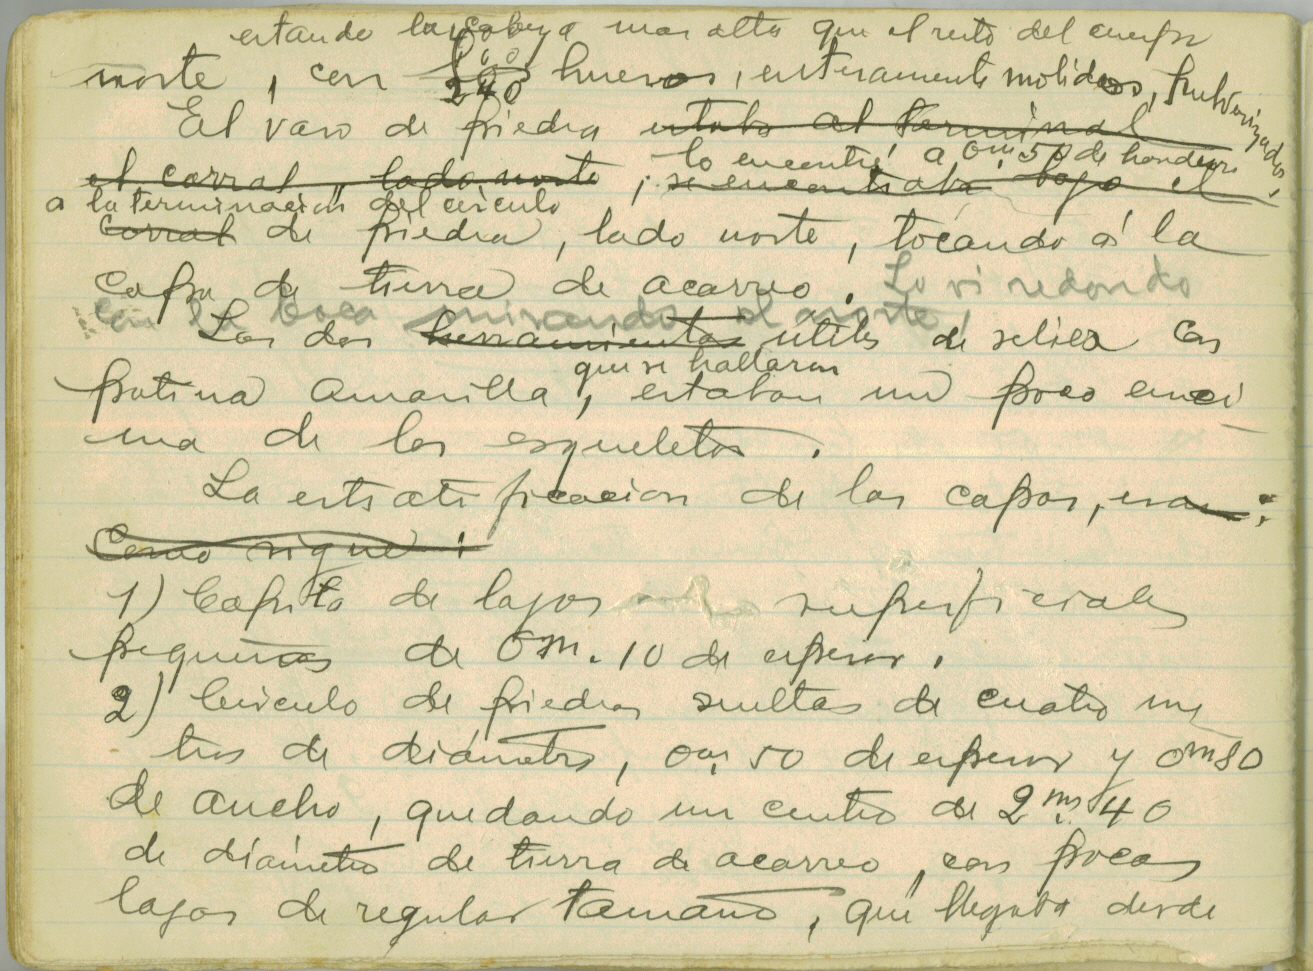 estando la cabeza mas alta que el resto del cuerpo
norte, con 240 huesos, enteramente molidos, pulverizados,
El vaso de piedra estaba al terminal
lo encontré a 0m.50 de hondura
el corral lado norte, se encontraba bajo el
a la terminacion del circulo
corral de piedra, lado norte, tocando á la
capa de tierra de acarreo. Lo vi redondo
con la boca mirando al norte.
Las dos herramientas utiles de silex con
que se hallaron
patina amarilla, estaban un poco enci
ma de los esqueletos.
La estratificacion de las capas, era:
Como sigue:
1) Capita de lajas superficiales
pequeñas de 0m.10 de espesor.
2) Circulo de piedras sueltas de cuatro me
tros de diámetro, 0m,50 de espesor y 0m80
de ancho, quedando un centro de 2ms.40
de diámetro de tierra de acarreo, con pocas
lajas de regular tamaño, que llegaba desde